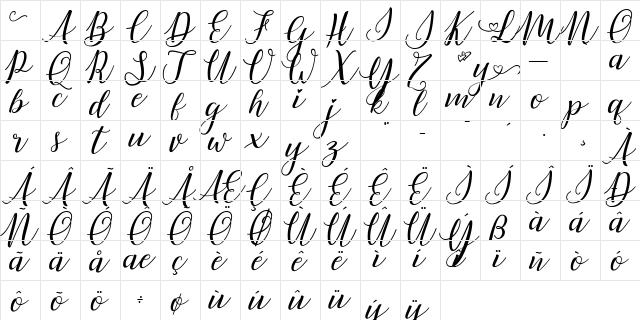 A B C D E F G H I J K L M N O
P Q R S T U V W X Y Z y — a
b c d e f g h i j k l m n o p q
r s t u v w x y z ¨ - ¨ ´ · ¸ À
Á Â Ã Ä Å Æ Ç È É Ê Ë Ì Í Î Ï Ð
Ñ Ò Ó Ô Õ Ö Ø Ù Ú Û Ü Ý ß à á â
ã ä å æ ç è é ê ë ì í î ï ñ ò ó
ô õ ö ÷ ø ù ú û ü ý ÿ